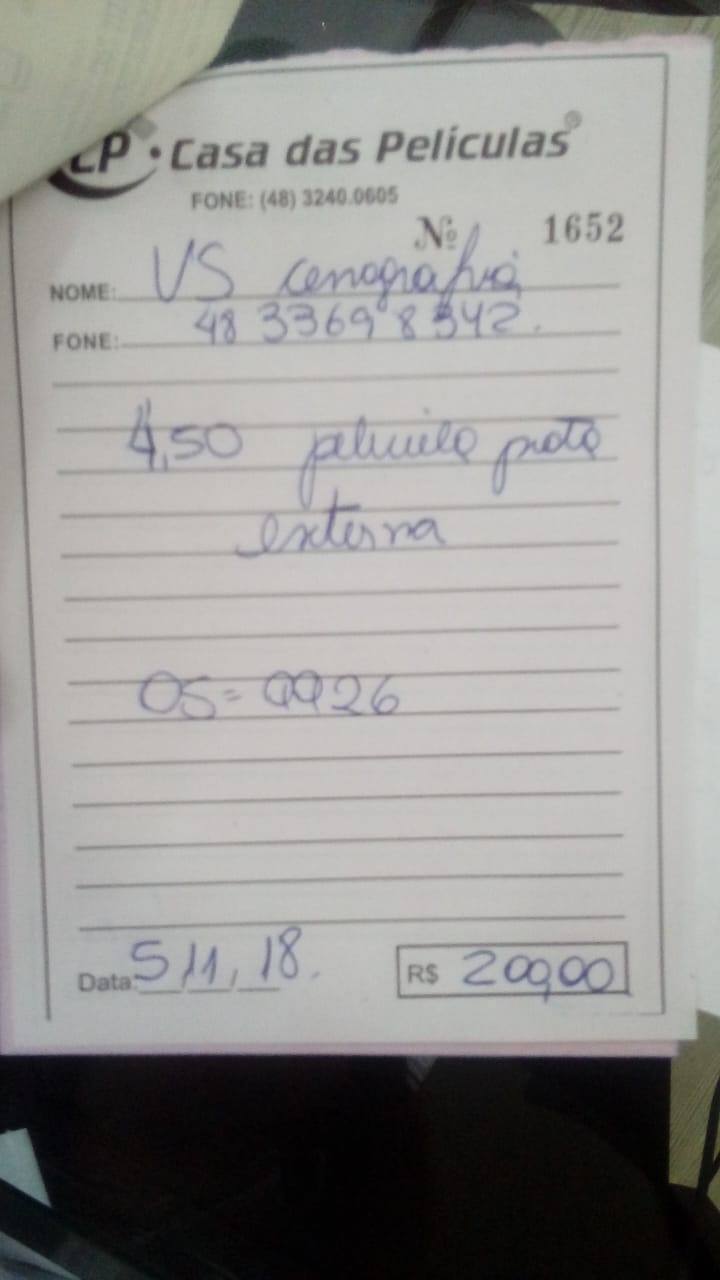 CP • Casa das Películas®
FONE: (48) 3240.0605
Nº 1652
NOME: VS cenografia
FONE: 48 3369 8342.
4,50 pelicula preta
externa
OS = 9926
Data: 5/11/18. R$ 200,00